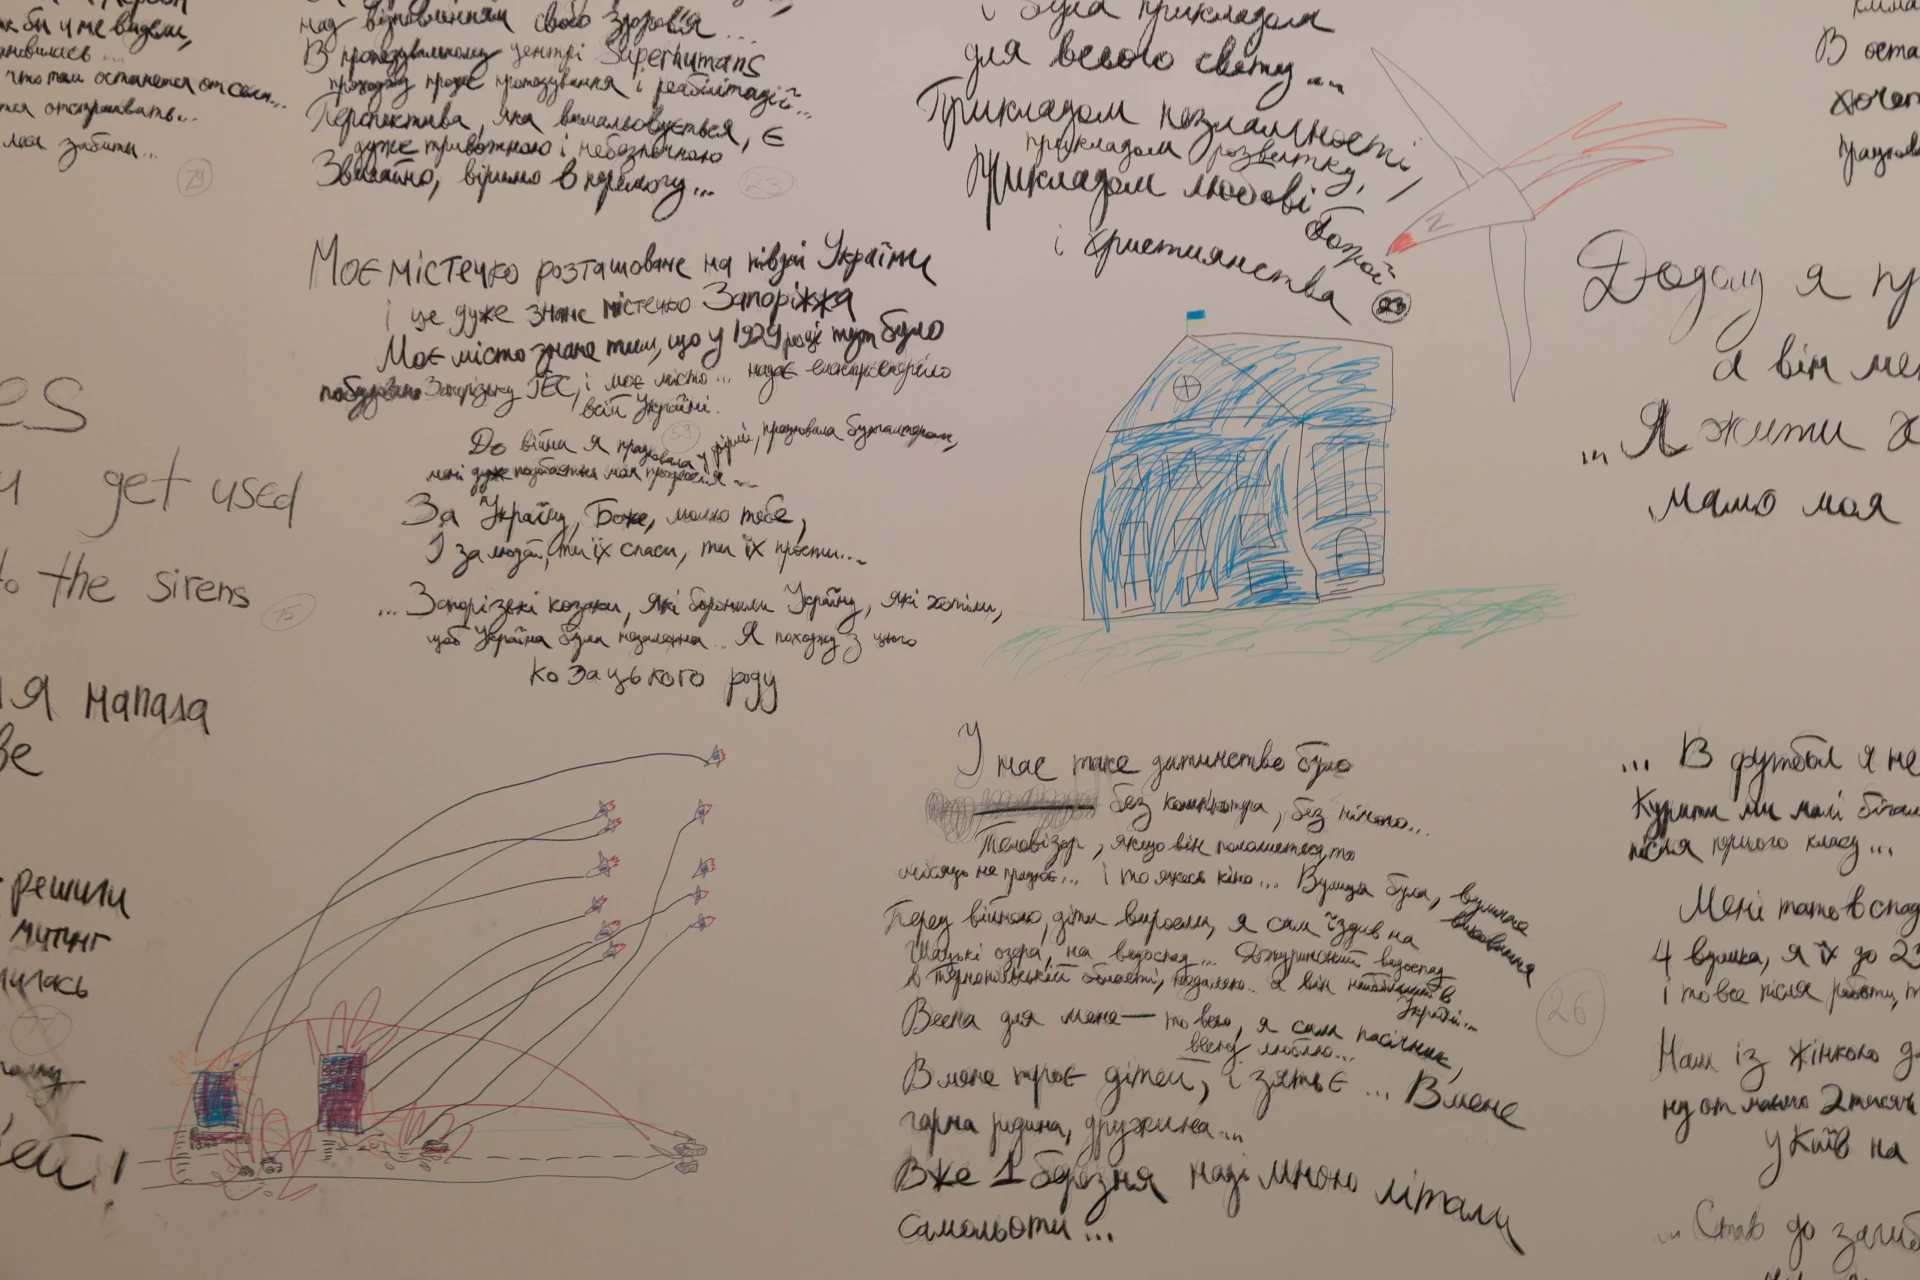 як би ч не видели,
что там останется от села...
отстраивать...
24
над відновленням свого здоров'я...
В протезувальному центрі Superhumans
проходжу процес протезування і реабілітації...
Перспектива, яка вимальовується, є
дуже тривожною і небезпечною
Звичайно, віримо в перемогу...
23
і була прикладом
для всього світу...
Прикладом незламності,
прикладом розвитку,
Прикладом любові Божої
і християнства
23
В оста
хочет
Моє містечко розташоване на півдні України
і це дуже знане містечко Запоріжжа
Моє місто знане тим, що у 1929 році тут було
побудовано Запорізьку ГЕС, і моє місто... надає електрометрело
всій Україні.
До війни я працювала у фірмі, працювала бухгалтером,
мені дуже подобається моя професія...
За Україну, Боже, молю тебе,
І за людей, ти їх спаси, ти їх прости...
...Запорізькі козаки, які боронили Україну, які хотіли,
щоб Україна була незалежна... Я походжу з цього
козацького роду
es
get used
to the sirens
15
я напала
ве
решили
митинг
чилась
77
ей!
Додому я пр
а він ме
...Я жити х
мамо моя
У нас таке дитинство було
без комп'ютера, без нічого...
Телевізор, якщо він поломиться, то
місяць не працює... і то якесь кіно... Вулиця була, вуличне
виховання
Перед війною, діти виросли, я сам їздив на
Шацькі озера, на водоспад... Джуринський водоспад
в Тернопільській області, недалеко... а він найбільший в
Україні...
Весна для мене — то вело, я сам пасічник,
весну люблю...
В мене троє дітей, і зять є... В мене
гарна родина, дружина...
Вже 1 березня наді мною літали
самольоти...
26
... В футбол я не
Курити ми малі бігал
після першого класу...
Мені тато в спад
4 вулика, я їх до 23
і то все після роботи, т
Нам із жінкою д
ну от маємо 2 тисячі
у Київ на
...Став до загиб